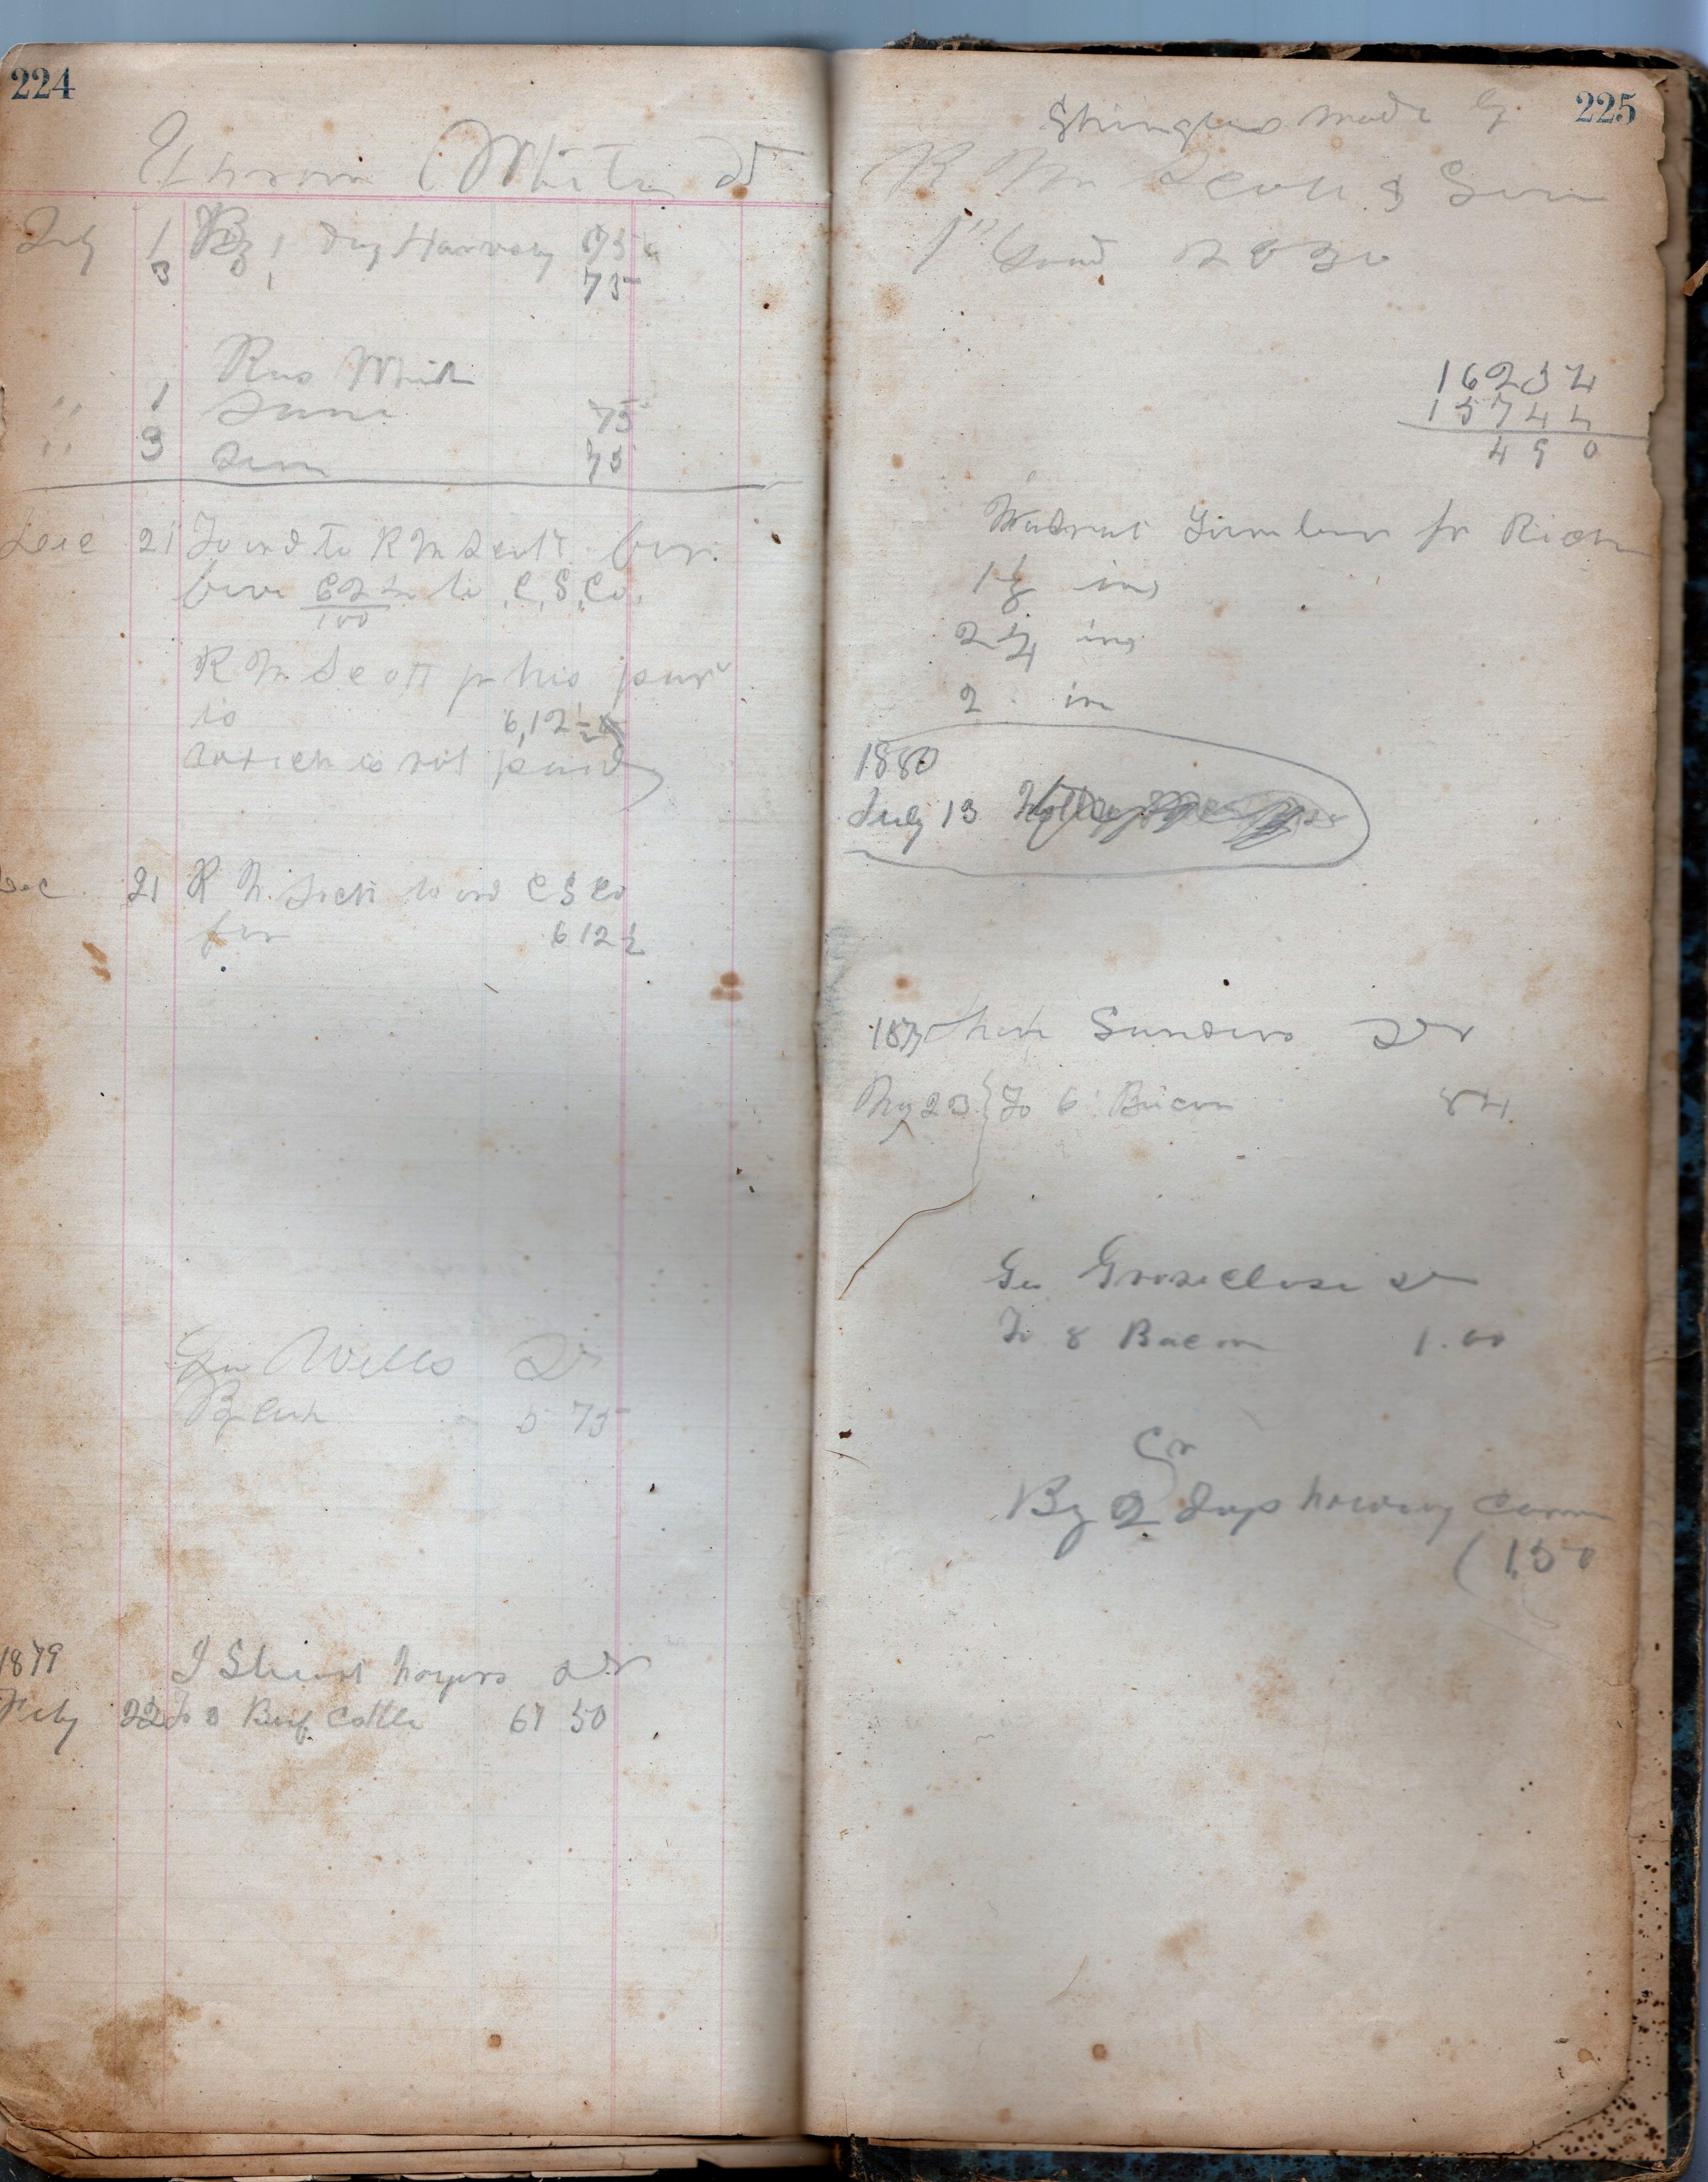 224
White Dr
July 1 By 1 day Harvesting 75
3 1 75
Rus White
" 1 Same 75
" 3 Same 75
Dec 21 To ord to R M Scott for
five 62½/100 to C, S, Co.
R M Scott for his part
is 6,12½
which is not paid
Dec 21 R M Scott to ord C S Co
for 6 12½
Geo Wells Dr
By Cash 5 75
1879
J Stuart Moyers Dr
Feby 22 To 3 Beef Cattle 67 50
225
Shingles made by
R M Scott & Son
1st Load 2030
16234
15744
490
Walnut Lumber for Rich
1½ ins
2¼ ins
2 in
1880
July 13
Sanders Dr
23 To 6 Bacon 84
Geo Groseclose Dr
To 8 Bacon 1.00
Cr
By 2 days howing Corn
1,50